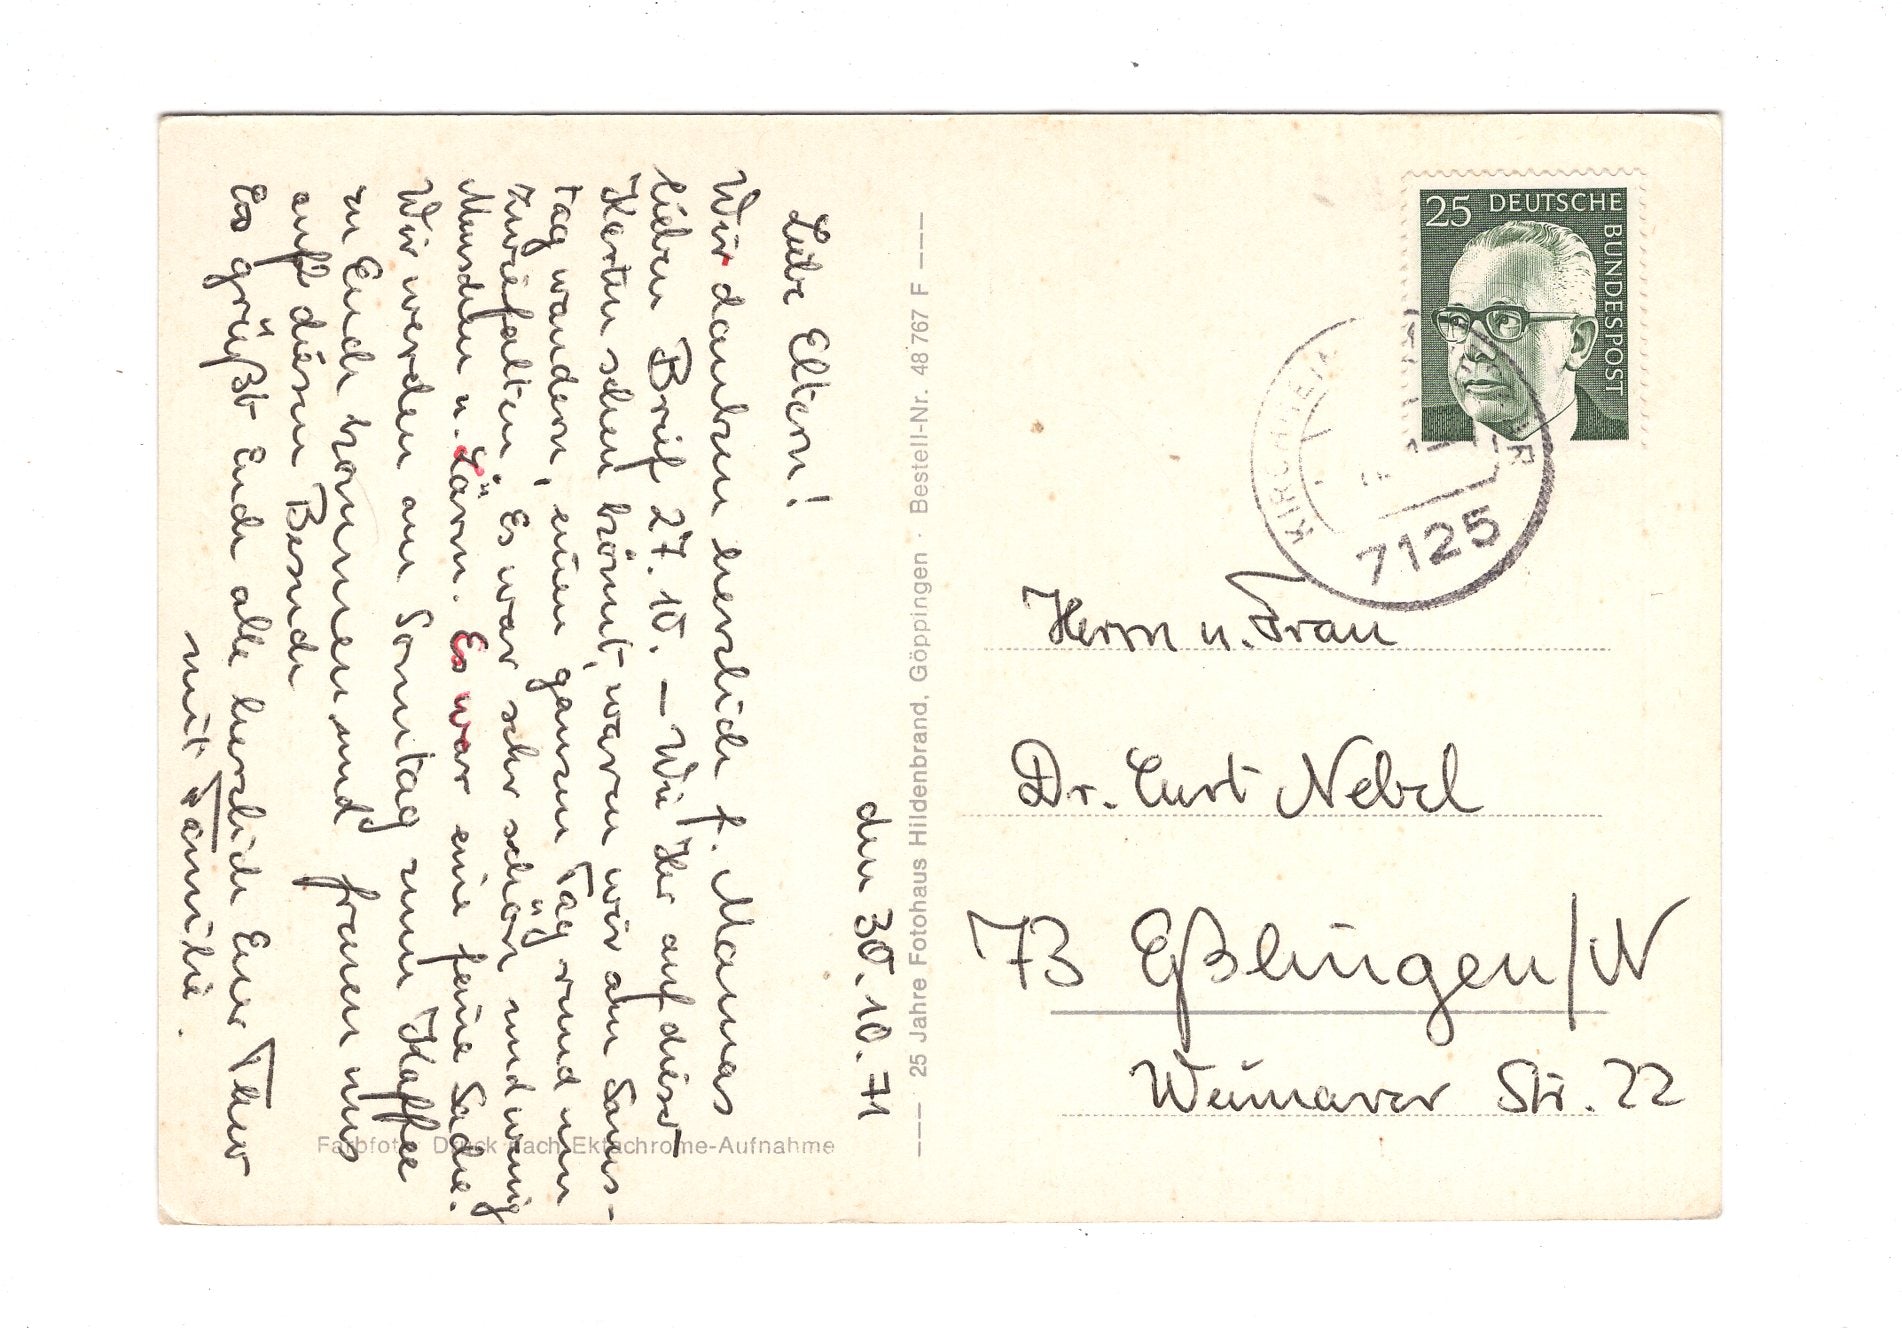 den 30.10.71
Liebe Eltern!
Wir danken herzlich f. Mamas
lieben Brief 27.10. – Wie Ihr auf dieser
Karten sehen könnt, waren wir am Sams-
tag wandern, einen ganzen Tag rund um
Zwiefalten. Es war sehr schön und wenig
Menschen u. Lärm. Es war eine feine Sache.
Wir werden am Sonntag zum Kaffee
zu Euch kommen und freuen uns
auf diesen Besuch
Es grüßt Euch alle herzlich Euer
mit Familie.
Farbfoto Druck nach Ektachrome-Aufnahme
25 Jahre Fotohaus Hildenbrand, Göppingen · Bestell-Nr. 48 767 F
25 DEUTSCHE BUNDESPOST
KIRCHHEIM
7125
Herrn u. Frau
Dr. Curt Nebel
73 Eßlingen/N
Weimarer Str. 22